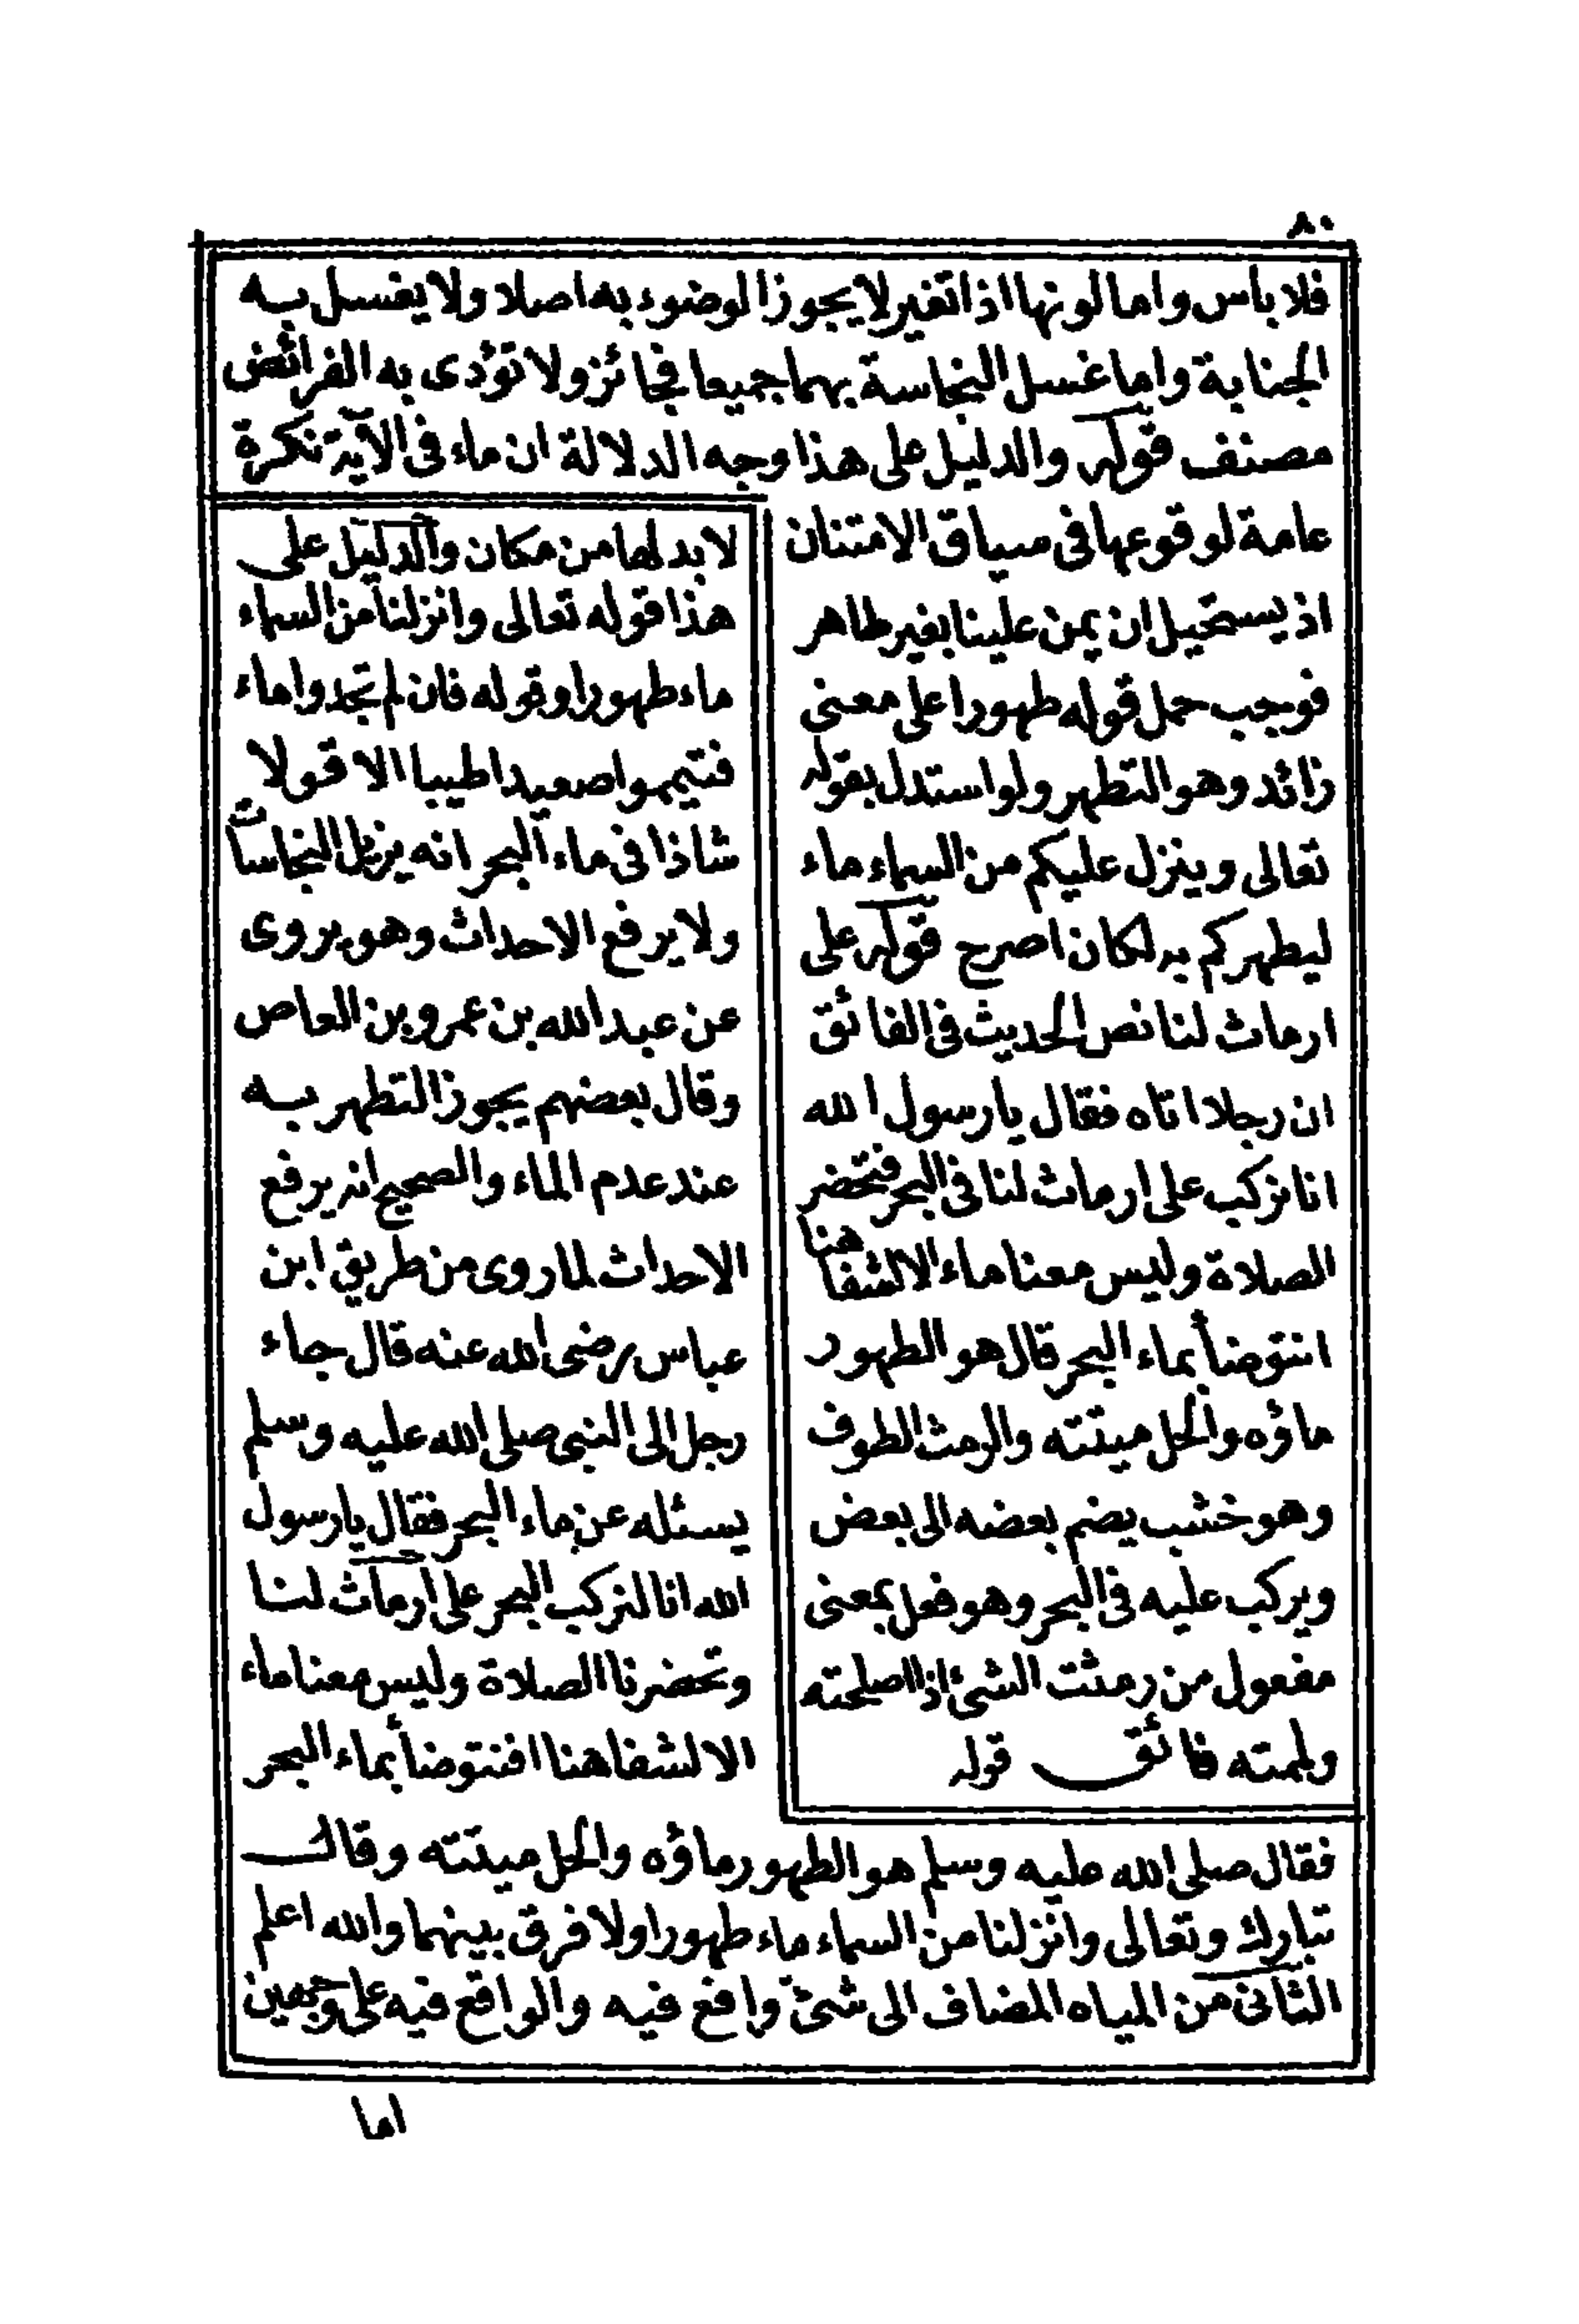 ٨٠
فلا باس واما لونها اذا تغير لا يجوز الوضوء به اصلا ولا يغسل به
الجنابة واما غسل النجاسة بهما جميعا فجائز ولا تؤدى به الفرائض
مصنف قوله والدليل على هذا وجه الدلالة ان ماء فى الآية نكرة
عامة لوقوعها فى سياق الامتنان
اذ يستحيل ان يمن علينا بغير طاهر
فوجب حمل قوله طهورا على معنى
زائد وهو التطهر ولو استدل بقوله
تعالى وينزل عليكم من السماء ماء
ليطهركم به لكان اصرح قوله على
ارماث لنا نص الحديث فى الفائق
ان رجلا اتاه فقال يا رسول الله
انا نركب على ارماث لنا فى البحر فتحضر
الصلاة وليس معنا ماء الا لشفاهنا
انتوضأ بماء البحر قال هو الطهور
ماؤه والحل ميتته والرمث الطوف
وهو خشب يضم بعضه الى بعض
ويركب عليه فى البحر وهو فعل بمعنى
مفعول من رمثت الشئ اذا اصلحته
ولممته فائق قوله
لا بد لها من مكان والدليل على
هذا قوله تعالى وانزلنا من السماء
ماء طهورا وقوله فان لم تجدوا ماء
فتيمموا صعيدا طيبا الا قولا
شاذا فى ماء البحر انه يزيل النجاسات
ولا يرفع الاحداث وهو يروى
عن عبد الله بن عمرو بن العاص
وقال بعضهم يجوز التطهر به
عند عدم الماء والصحيح انه يرفع
الاحداث لما روى من طريق ابن
عباس رضى الله عنه قال جاء
رجل الى النبى صلى الله عليه وسلم
يسئله عن ماء البحر فقال يا رسول
الله انا لنركب البحر على ارماث لنا
وتحضرنا الصلاة وليس معنا ماء
الا لشفاهنا افنتوضأ بماء البحر
فقال صلى الله عليه وسلم هو الطهور ماؤه والحل ميتته وقال
تبارك وتعالى وانزلنا من السماء ماء طهورا ولا فرق بينهما والله اعلم
الثانى من المياه المضاف الى شئ واقع فيه والواقع فيه على وجهين
اما